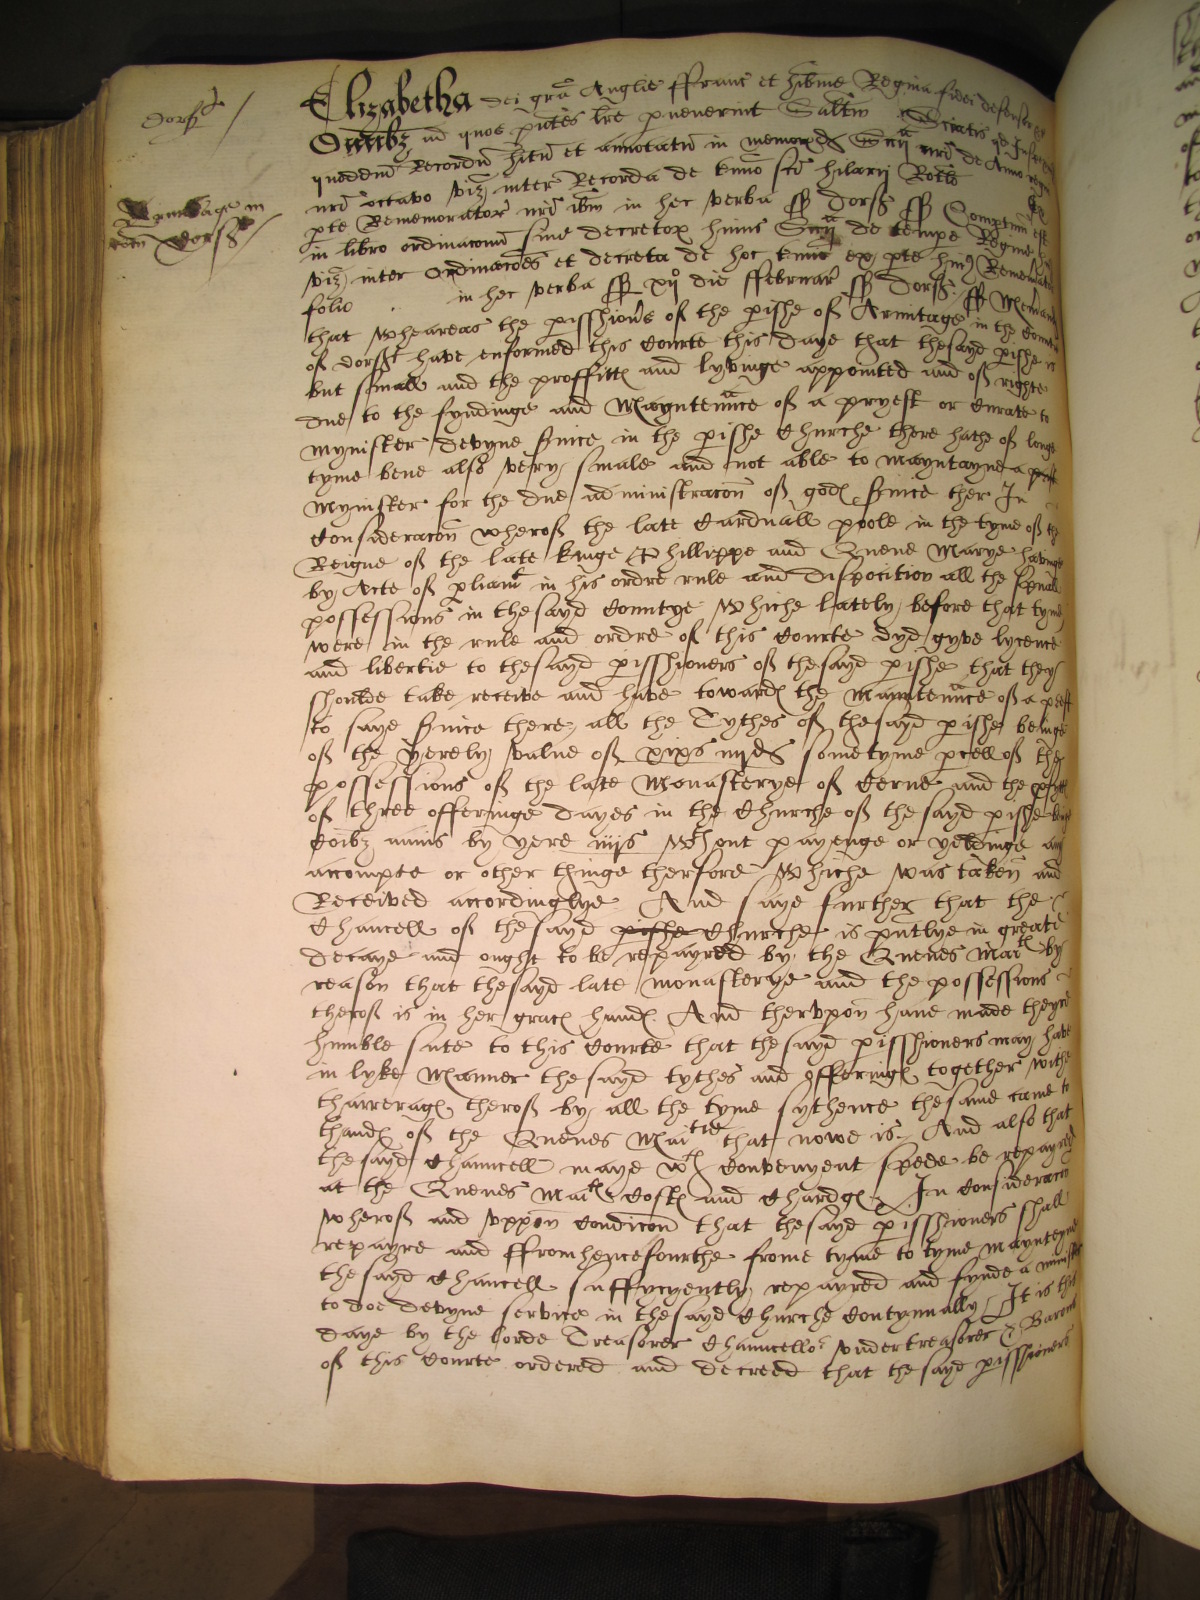 Dorst
Armitage in
com Dorst
Elizabetha dei gra Anglie ffranc et hibnie Regina fidei defensor &c
Omibz ad quos pntes lre pvenerint Saltm Sciatis qd Inspeximus
quoddam Recordu hitu et annotatu in memorand Sccii nri de Anno regni
nri octavo viz inter Recorda de tmino sci hilarij Rotlo ex
pte Rememorator nri ibm in hec verba ss Dorst ss Compertum est
in libro ordinaconu sive decretor huius Sccii de tempe Regine
viz inter Ordinacoes et decreta de hoc tmino ex pte huius Rememorator
folio in hec verba ss xijo die ffebruar ss Dorst ss Memorand
that wheareas the pisshions of the pishe of Armitage in the Countie
of Dorst have enformed this Courte this daye that thesayd pishe is
but small and the proffitts and lyvinge appointed and of righte
due to the fyndinge and Mayntennce of a pryest or Curate to
mynister devyne svice in the pishe Churche there hathe of longe
tyme bene also very smale and not able to mayntayne a
mynister for the due administracon of gods svice ther In
Consideracon wherof the late Cardnall poole in the tyme of the
Reigne of the late kinge Phillippe and Quene Marye having
by Acte of pliamt in his ordre rule and disposition all the spuall
possessions in thesayd Countye whiche lately before that tyme
were in the rule and ordre of this Courte dyd gyve lycence
and libertie to thesayd pisshioners of thesayd pishe that they
shoulde take receive and have towards the mayntennce of a preist
to saye svice there all the Tythes of thesayd pishe beinge
of the yerely value of xixs iiijd sometyme pcell of the
possessions of the late Monasterye of Cerne and the pfytts
of three offeringe dayes in the Churche of the sayd pishe
Coibz annis by yere iiijs wthout payenge or yeldinge any
accompte or other thinge therfore whiche was taken and
Received accordinglye And saye further that the
Chancell of thesayd pishe Churche is pntlye in greate
decaye and ought to be repayred by the Quenes Matie by
reason that thesayd late monasterye and the possessions
therof is in her gracs hands And thervpon have made theyre
humble sute to this Courte that thesayd pisshioners may have
in lyke Manner thesayd tythes and offerings together withe
tharrerags therof by all the tyme sythence thesame came to
thands of the Quenes Maitie that nowe is And also that
thesayd Chauncell maye wth Convenyent spede be repayred
at the Quenes Maits Costs and Chardgs In Consideracon
wherof and vppon Condicon that thesayd pisshioners shall
repayre and ffromhencefourthe frome tyme to tyme mayntayne
thesayd Chancell suffycyently repayred and fynde a minister
to doe devyne service in thesayd Churche Contynually It is this
daye by the lorde Treasorer Chauncellor vndertreasorer & Barons
of this Courte ordered and decreed that thesayd pisshioners